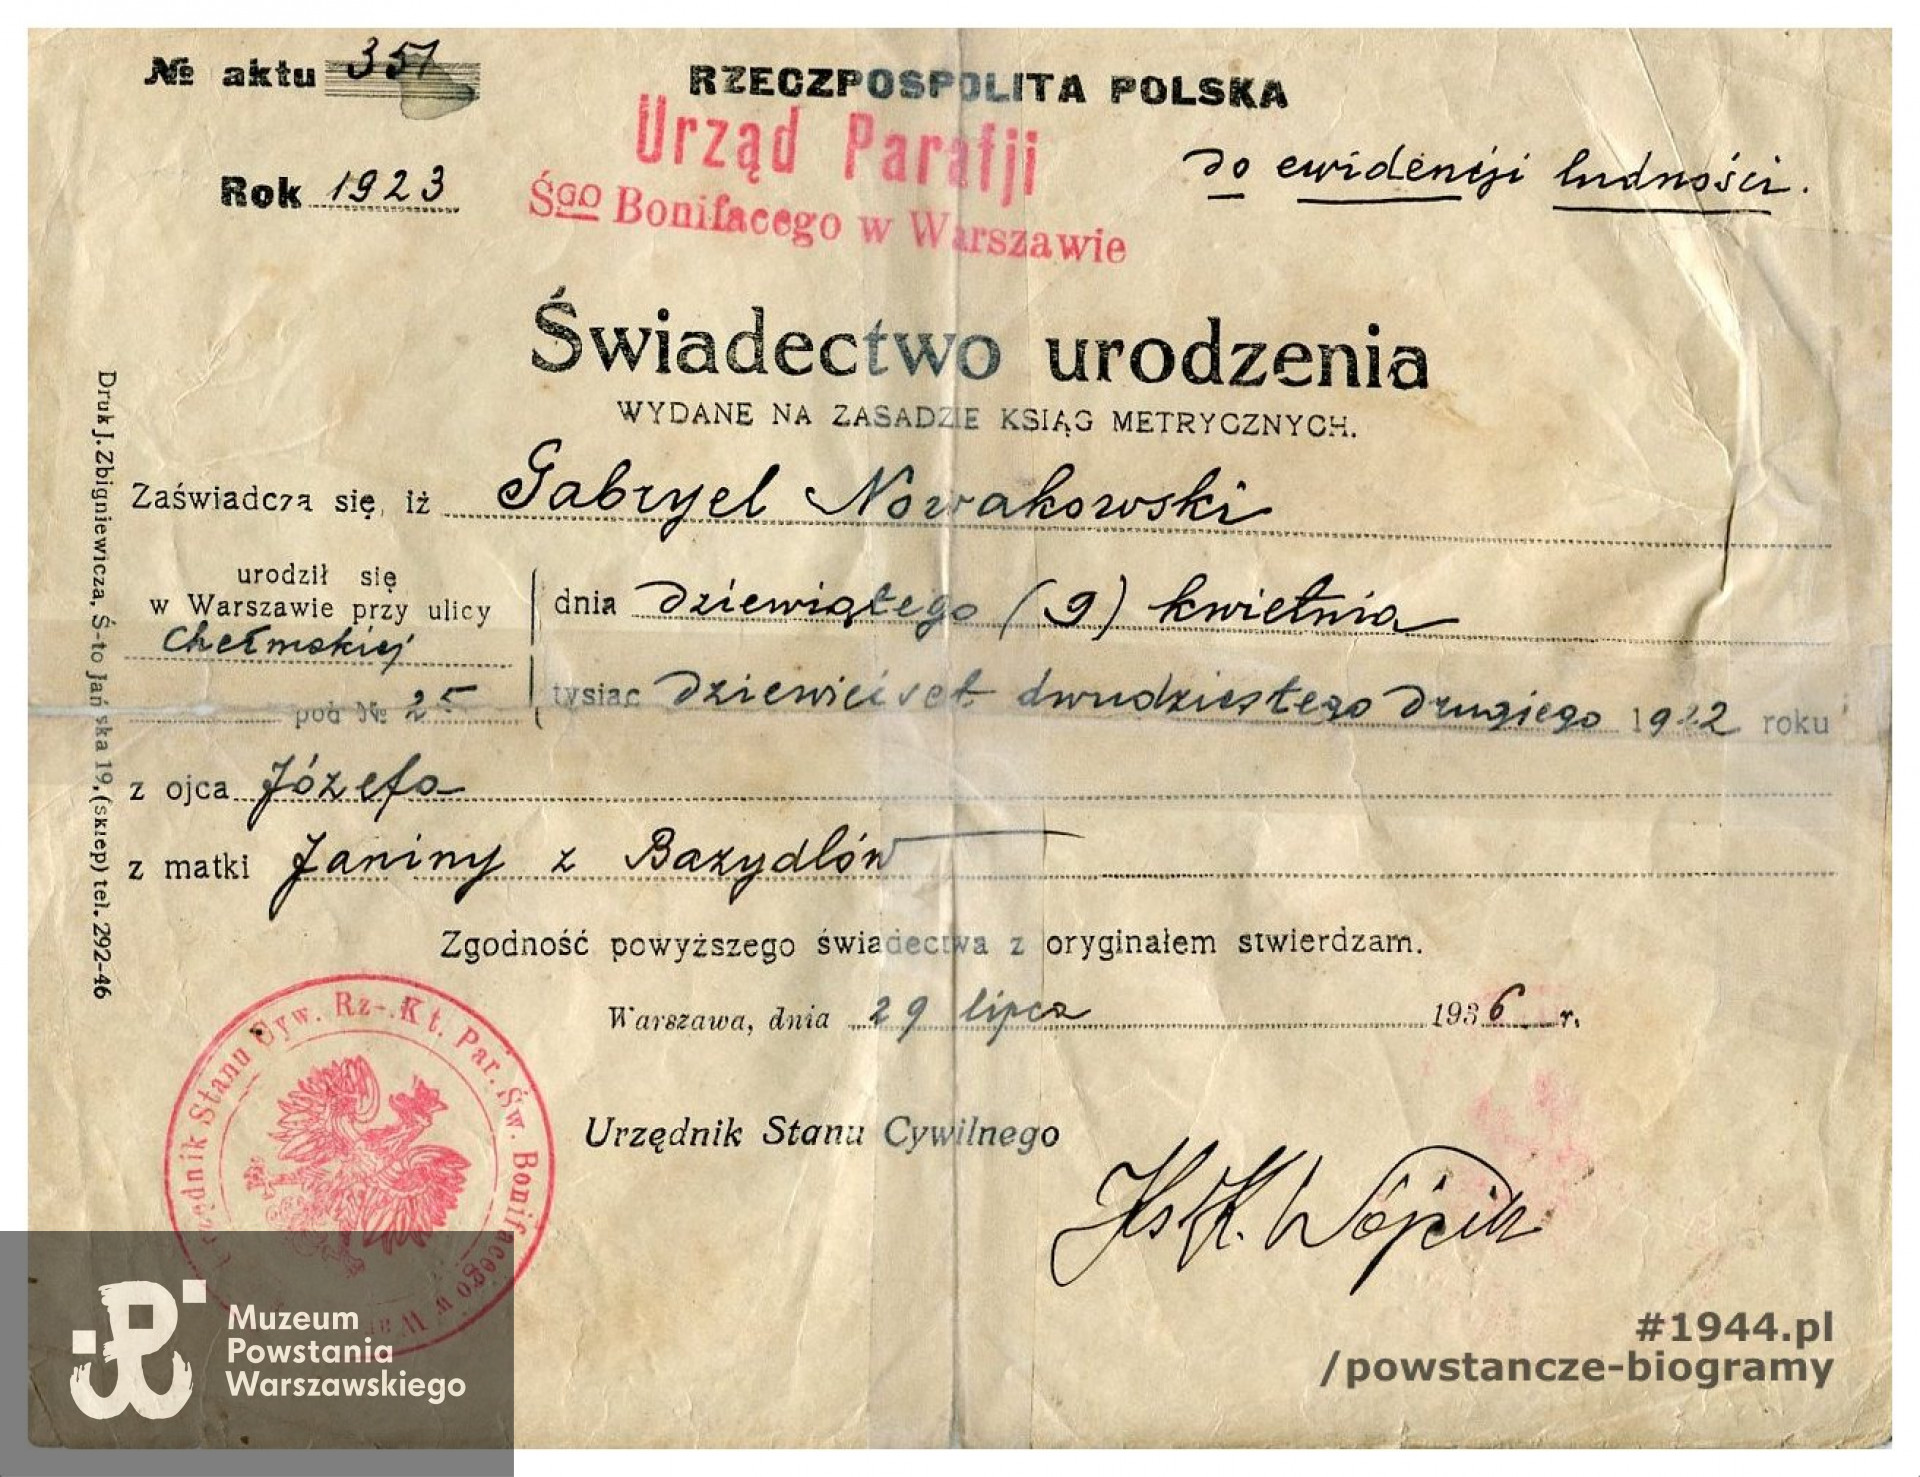 № aktu 351
RZECZPOSPOLITA POLSKA
Urząd Parafji
Śgo Bonifacego w Warszawie
do ewidencji ludności.
Rok 1923
Świadectwo urodzenia
WYDANE NA ZASADZIE KSIĄG METRYCZNYCH.
Zaświadcza się, iż Gabryel Nowakowski
urodził się
w Warszawie przy ulicy
Chełmskiej
pod № 25
dnia dziewiątego (9) kwietnia
tysiąc dziewięćset dwudziestego drugiego 1922 roku
z ojca Józefa
z matki Janiny z Bazydlów
Zgodność powyższego świadectwa z oryginałem stwierdzam.
Warszawa, dnia 29 lipca 1936 r.
Urzędnik Stanu Cywilnego
Ks K. Wójcik
Druk J. Zbigniewicza, Ś-to Jańska 19, (sklep) tel. 292-46
Urzędnik Stanu Cyw. Rz-.Kt. Par. Św. Bonifacego w
Muzeum
Powstania
Warszawskiego
#1944.pl
/powstancze-biogramy